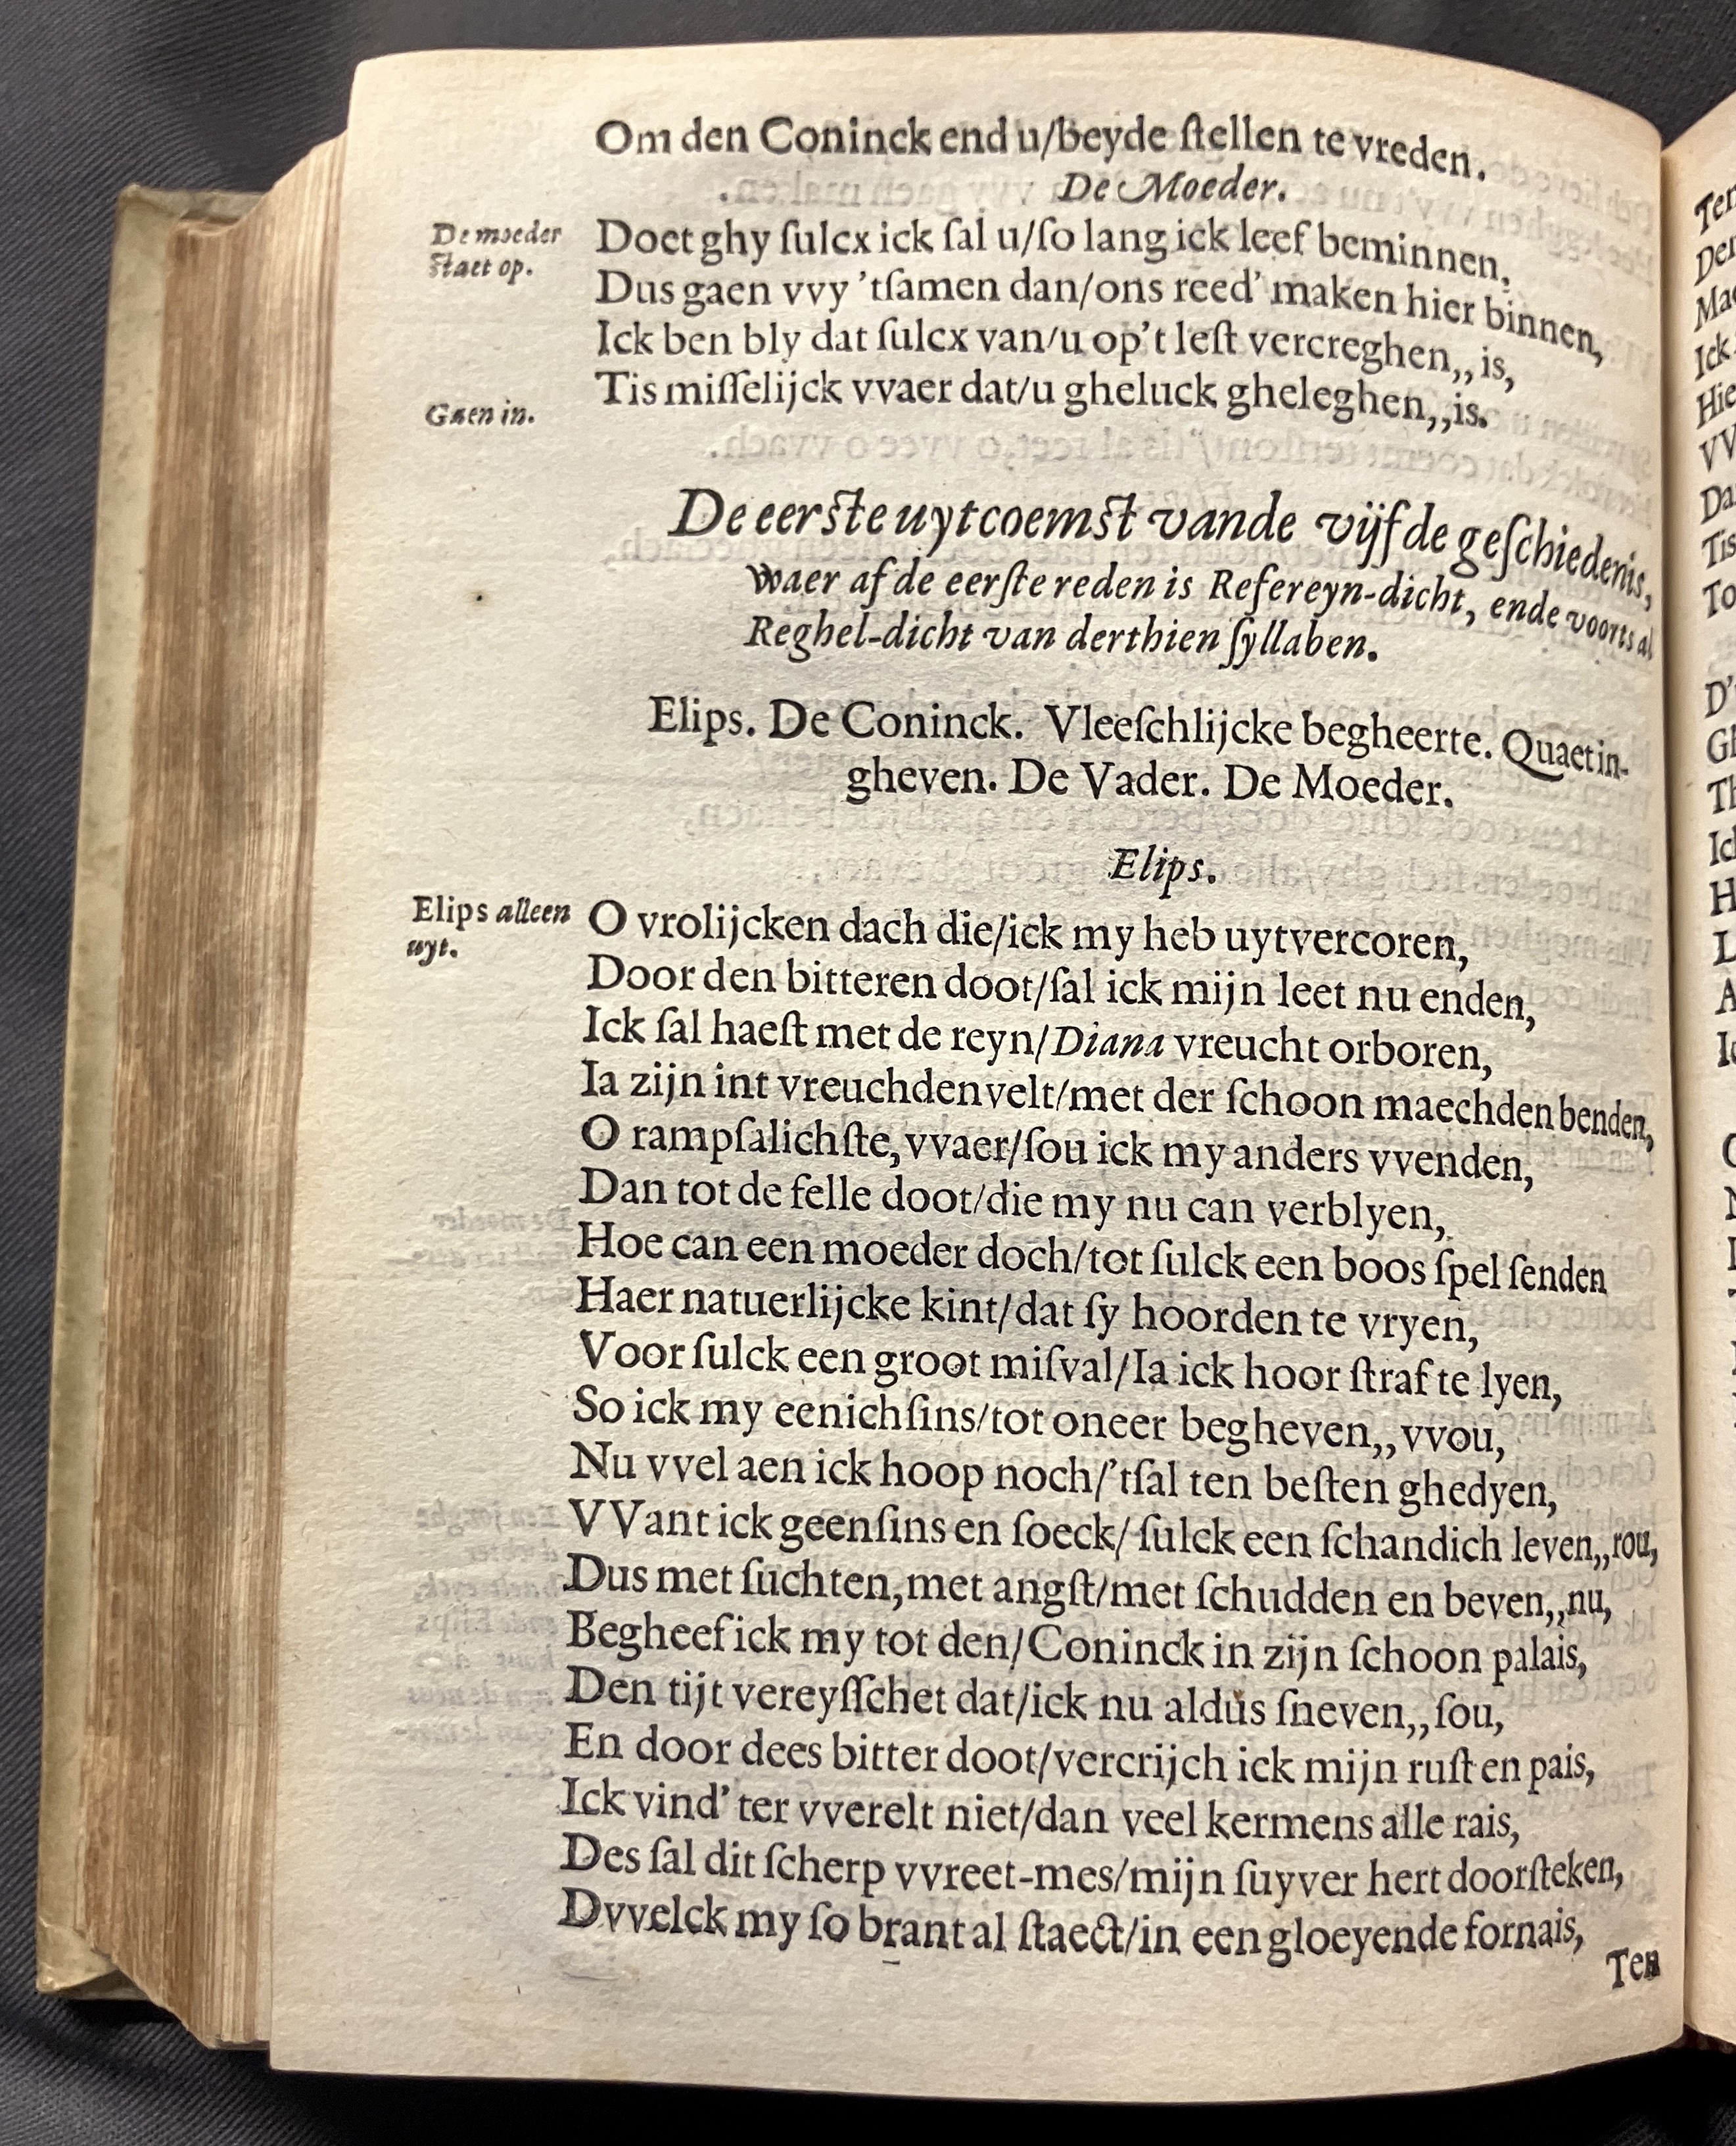 Om den Coninck end u/beyde ſtellen te vreden.
De Moeder.
De moeder
ſtaet op.
Doet ghy ſulcx ick ſal u/ſo lang ick leef beminnen,
Dus gaen vvy 'tſamen dan/ons reed' maken hier binnen,
Ick ben bly dat ſulcx van/u op't leſt vercreghen,, is,
Tis miſſelijck vvaer dat/u gheluck gheleghen,,is.
Gaen in.
De eerſte uytcoemſt vande vijfde geſchiedenis,
waer af de eerſte reden is Refereyn-dicht, ende voorts al
Reghel-dicht van derthien ſyllaben.
Elips. De Coninck. Vleeſchlijcke begheerte. Quaet in-
gheven. De Vader. De Moeder.
Elips.
Elips alleen
uyt.
O vrolijcken dach die/ick my heb uytvercoren,
Door den bitteren doot/ſal ick mijn leet nu enden,
Ick ſal haeſt met de reyn/Diana vreucht orboren,
Ia zijn int vreuchdenvelt/met der ſchoon maechden benden,
O rampſalichſte, vvaer/ſou ick my anders vvenden,
Dan tot de felle doot/die my nu can verblyen,
Hoe can een moeder doch/tot ſulck een boos ſpel ſenden
Haer natuerlijcke kint/dat ſy hoorden te vryen,
Voor ſulck een groot miſval/Ia ick hoor ſtraf te lyen,
So ick my eenichſins/tot oneer begheven,, vvou,
Nu vvel aen ick hoop noch/'tſal ten beſten ghedyen,
VVant ick geenſins en ſoeck/ſulck een ſchandich leven,,rou,
Dus met ſuchten, met angſt/met ſchudden en beven,,nu,
Begheef ick my tot den/Coninck in zijn ſchoon palais,
Den tijt vereyſſchet dat/ick nu aldus ſneven,, ſou,
En door dees bitter doot/vercrijch ick mijn ruſt en pais,
Ick vind' ter vverelt niet/dan veel kermens alle rais,
Des ſal dit ſcherp vvreet-mes/mijn ſuyver hert doorſteken,
Dvvelck my ſo brant al ſtaect/in een gloeyende fornais,
Ten